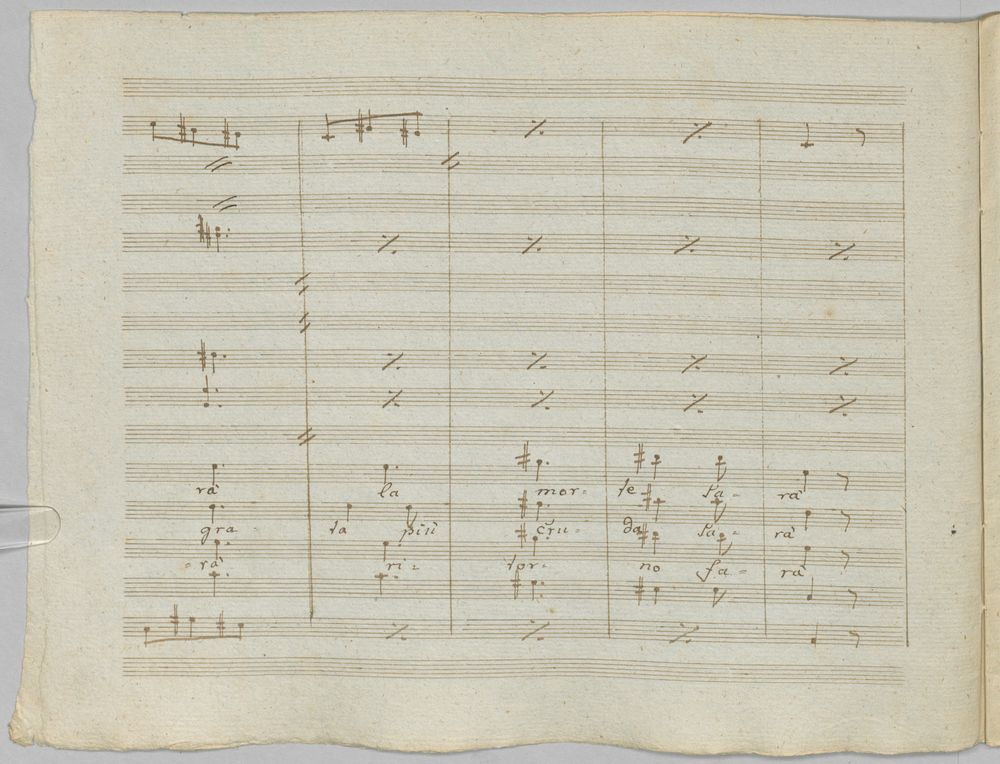 rà la mor= te sa= rà
gra= ta più cru= da sa= rà
=rà ri= tor= no fa= rà